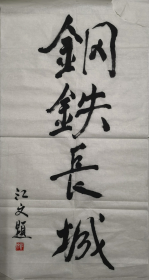 鋼鉄長城
江文題